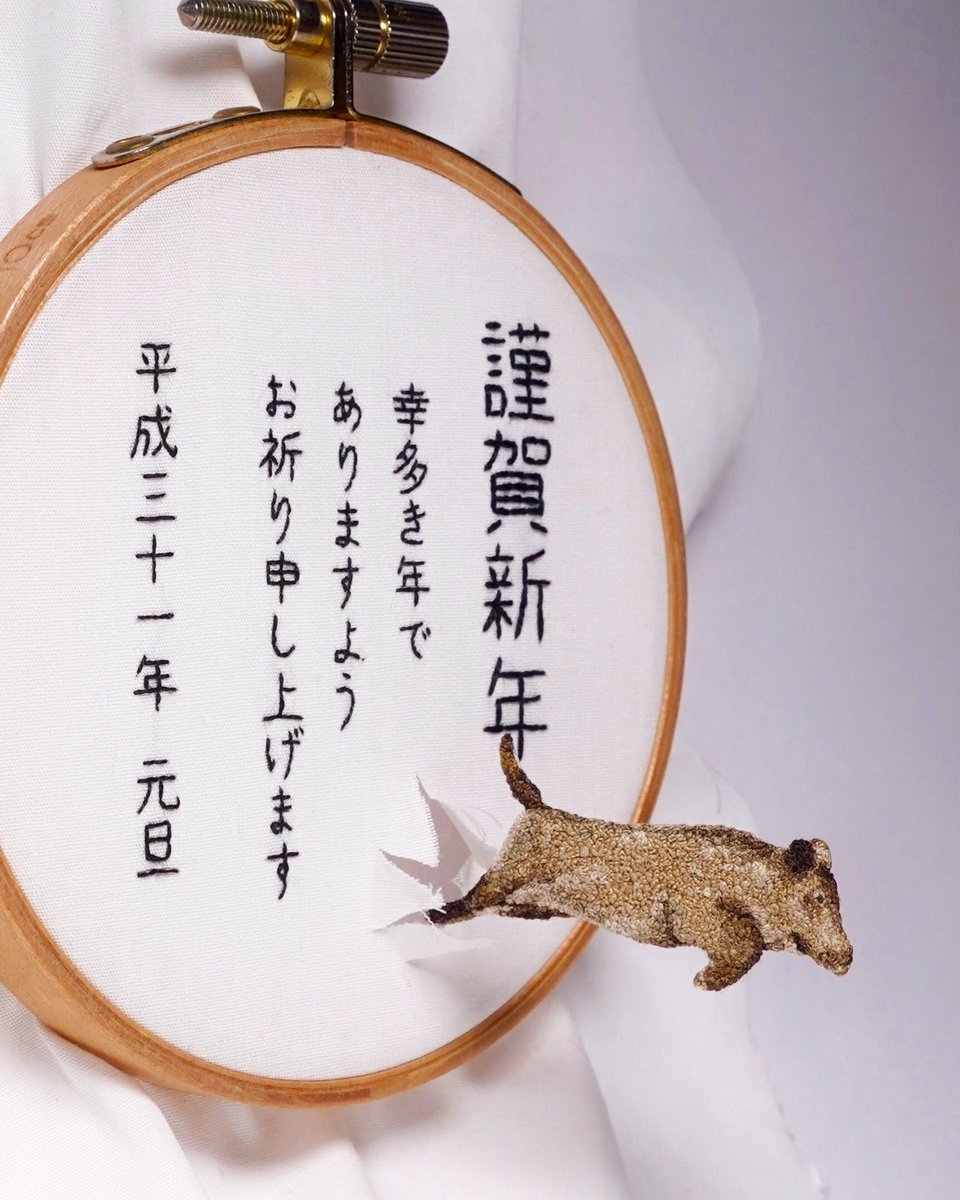 謹賀新年
幸多き年で
ありますよう
お祈り申し上げます
平成三十一年 元旦